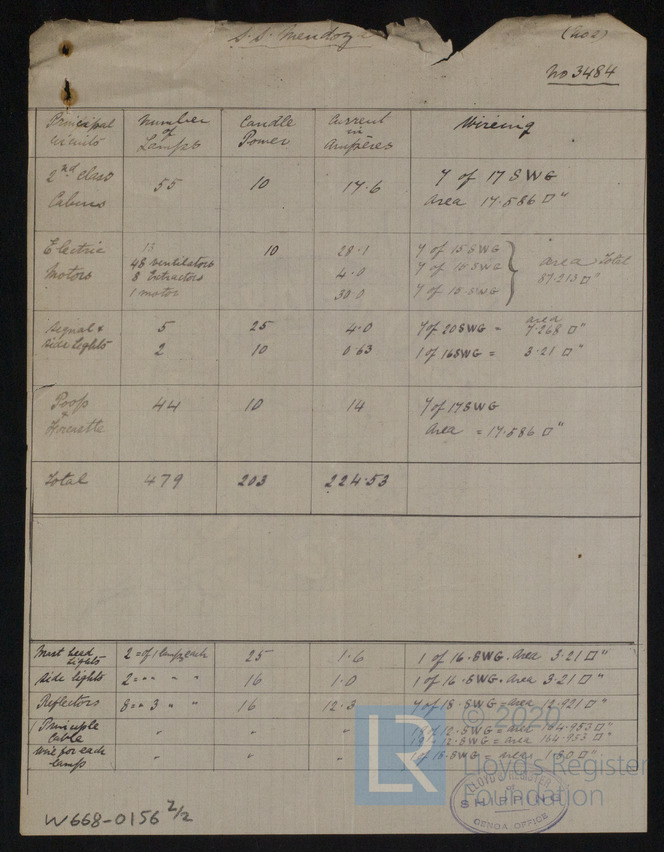 S.S. Mendoza (No 2)
No 3484
Principal Circuits | Number of Lamps | Candle Power | Current in Ampères | Wireing
2nd Class Cabins | 55 | 10 | 17.6 | 7 of 17 SWG
area 17.586 □"
Electric Motors | 13 | 10 | 28.1 | 7 of 15 SWG
48 ventilators | 4.0 | 7 of 18 SWG
8 Extractors
1 motor | 30.0 | 7 of 18 SWG
area Total
87.213 □"
Signal & Side Lights | 5 | 25 | 4.0 | 7 of 20 SWG = area 7.268 □"
2 | 10 | 0.63 | 1 of 16 SWG = 3.21 □"
Poop & | 44 | 10 | 14 | 7 of 17 SWG
area = 17.586 □"
Total | 479 | 203 | 224.53
Mast head Lights | 2 = of 1 lamp each | 25 | 1.6 | 1 of 16 . SWG . area 3.21 □"
Side lights | 2 = " " " | 16 | 1.0 | 1 of 16 . SWG . area 3.21 □"
Reflectors | 8 = " 3 " " | 16 | 12.3 | 7 of 18 . SWG = area 12.921 □"
Principle Cable | " | " | " | 12 . SWG = area 164.953 □"
12 . SWG = area 164.953 □"
wire for each lamp | " | " | " | 1 of 18 . SWG = area 1.80 □"
© 2020
LR
Lloyd's Register
Foundation
LLOYD'S REGISTER
OF
SHIPPING
GENOA OFFICE
W668-0156 2/2